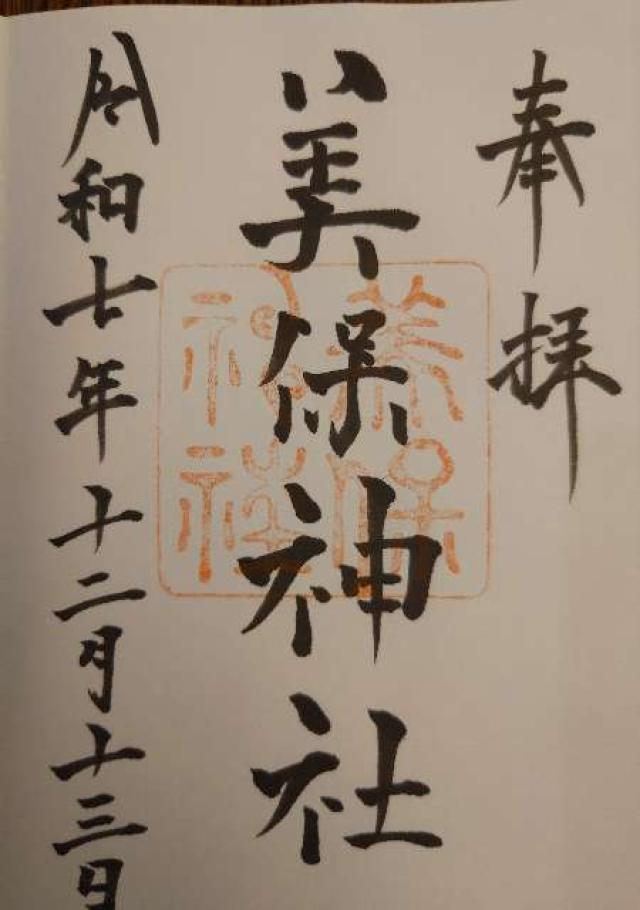 奉拝
美保神社
美保
神社
令和七年十二月十三日